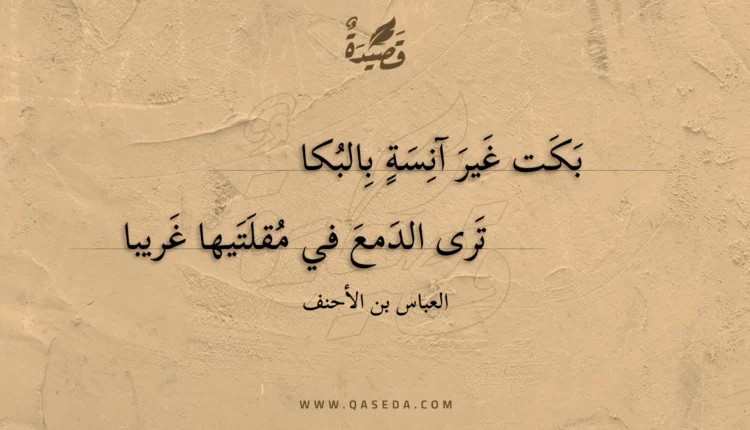 قَصِيْدَةٌ
بَكَت غَيرَ آنِسَةٍ بِالبُكا
تَرى الدَمعَ في مُقلَتَيها غَريبا
العباس بن الأحنف
WWW.QASEDA.COM